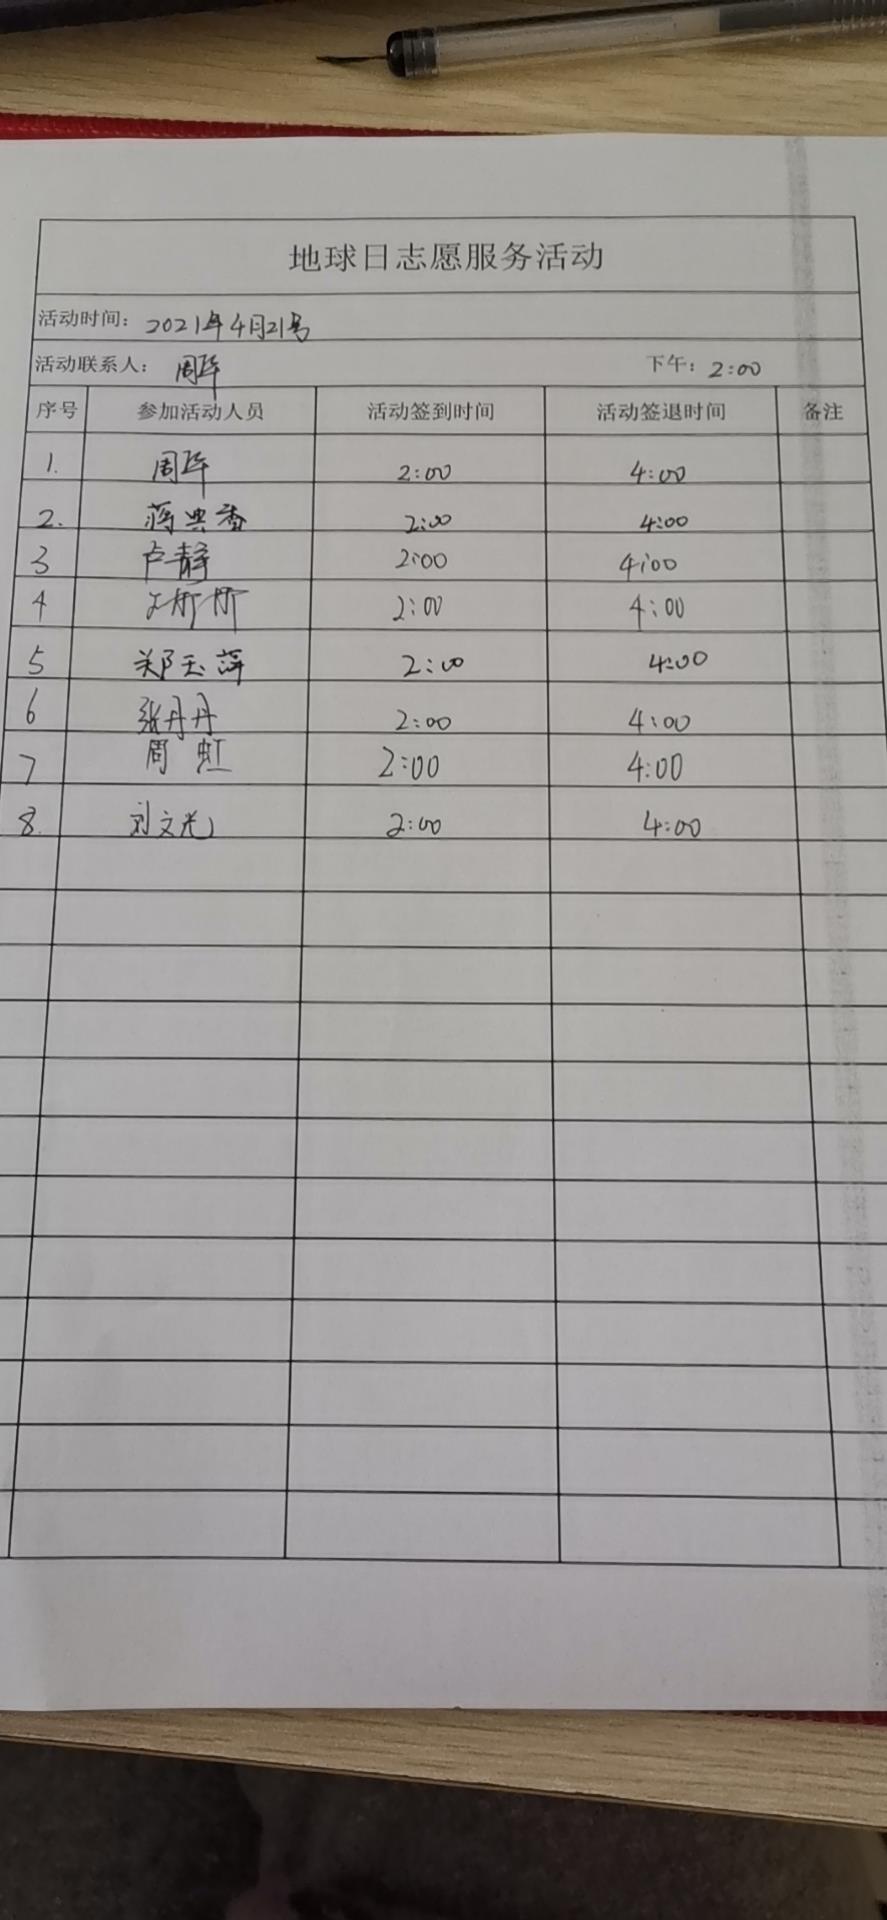 地球日志愿服务活动
活动时间：2021年4月21号
活动联系人：周华 下午：2:00
序号 参加活动人员 活动签到时间 活动签退时间 备注
1. 周华 2:00 4:00
2. 蒋典香 2:00 4:00
3 卢静 2:00 4:00
4 2:00 4:00
5 郑玉萍 2:00 4:00
6 张丹丹 2:00 4:00
7 周虹 2:00 4:00
8. 刘文光 2:00 4:00